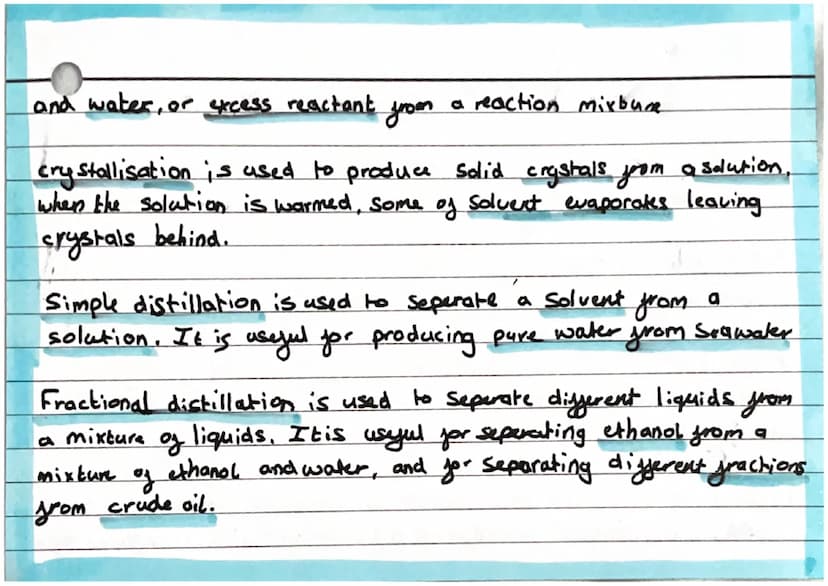 and water, or excess reactant from a reaction mixture
crystallisation is used to produce solid crystals from a solution.
when the solution is warmed, some of solvent evaporates leaving
crystals behind.
Simple distillation is used to seperate a solvent from a
solution. It is useful for producing pure water from seawater
Fractional distillation is used to seperate different liquids from
a mixture of liquids. It is useful for seperating ethanol from a
mixture of ethanol and water, and for separating different fractions
from crude oil.